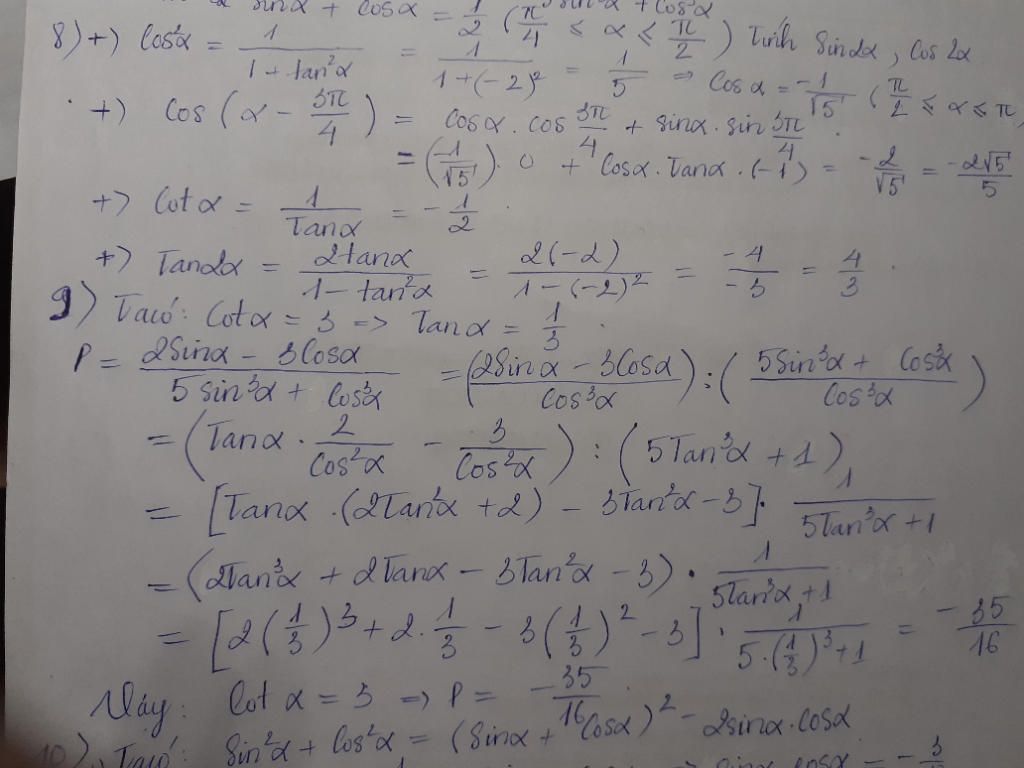 sinα + cosα = 1/2 (π/4 ≤ α ≤ π/2) Tính Sin2α, Cos2α
8) +) Cos²α = 1/(1 + tan²α) = 1/(1+(-2)²) = 1/5 => Cosα = -1/√5 (π/2 ≤ α ≤ π
+) Cos(α - 3π/4) = Cosα.cos 3π/4 + sinα.sin 3π/4.
= (-1/√5).0 + Cosα.Tanα.(-1) = -2/√5 = -2√5/5
+) Cotα = 1/Tanα = -1/2.
+) Tan2α = 2tanα/(1 - tan²α) = 2(-2)/(1-(-2)²) = -4/-3 = 4/3.
9) Ta có: Cotα = 3 => Tanα = 1/3.
P = (2Sinα - 3Cosα)/(5sin³α + cos³α) = ((2Sinα - 3Cosα)/Cos³α) : ((5Sin³α + Cos³α)/Cos³α)
= (Tanα . 2/Cos²α - 3/Cos²α) : (5Tan³α + 1)
= [Tanα.(2Tan²α + 2) - 3Tan²α - 3]. 1/(5Tan³α + 1)
= (2Tan³α + 2Tanα - 3Tan²α - 3). 1/(5Tan³α + 1)
= [2(1/3)³ + 2.1/3 - 3(1/3)² - 3]. 1/(5.(1/3)³+1) = -35/16
Vậy: Cotα = 3 => P = -35/16.
10) Ta có: Sin²α + Cos²α = (Sinα + Cosα)² - 2sinα.cosα